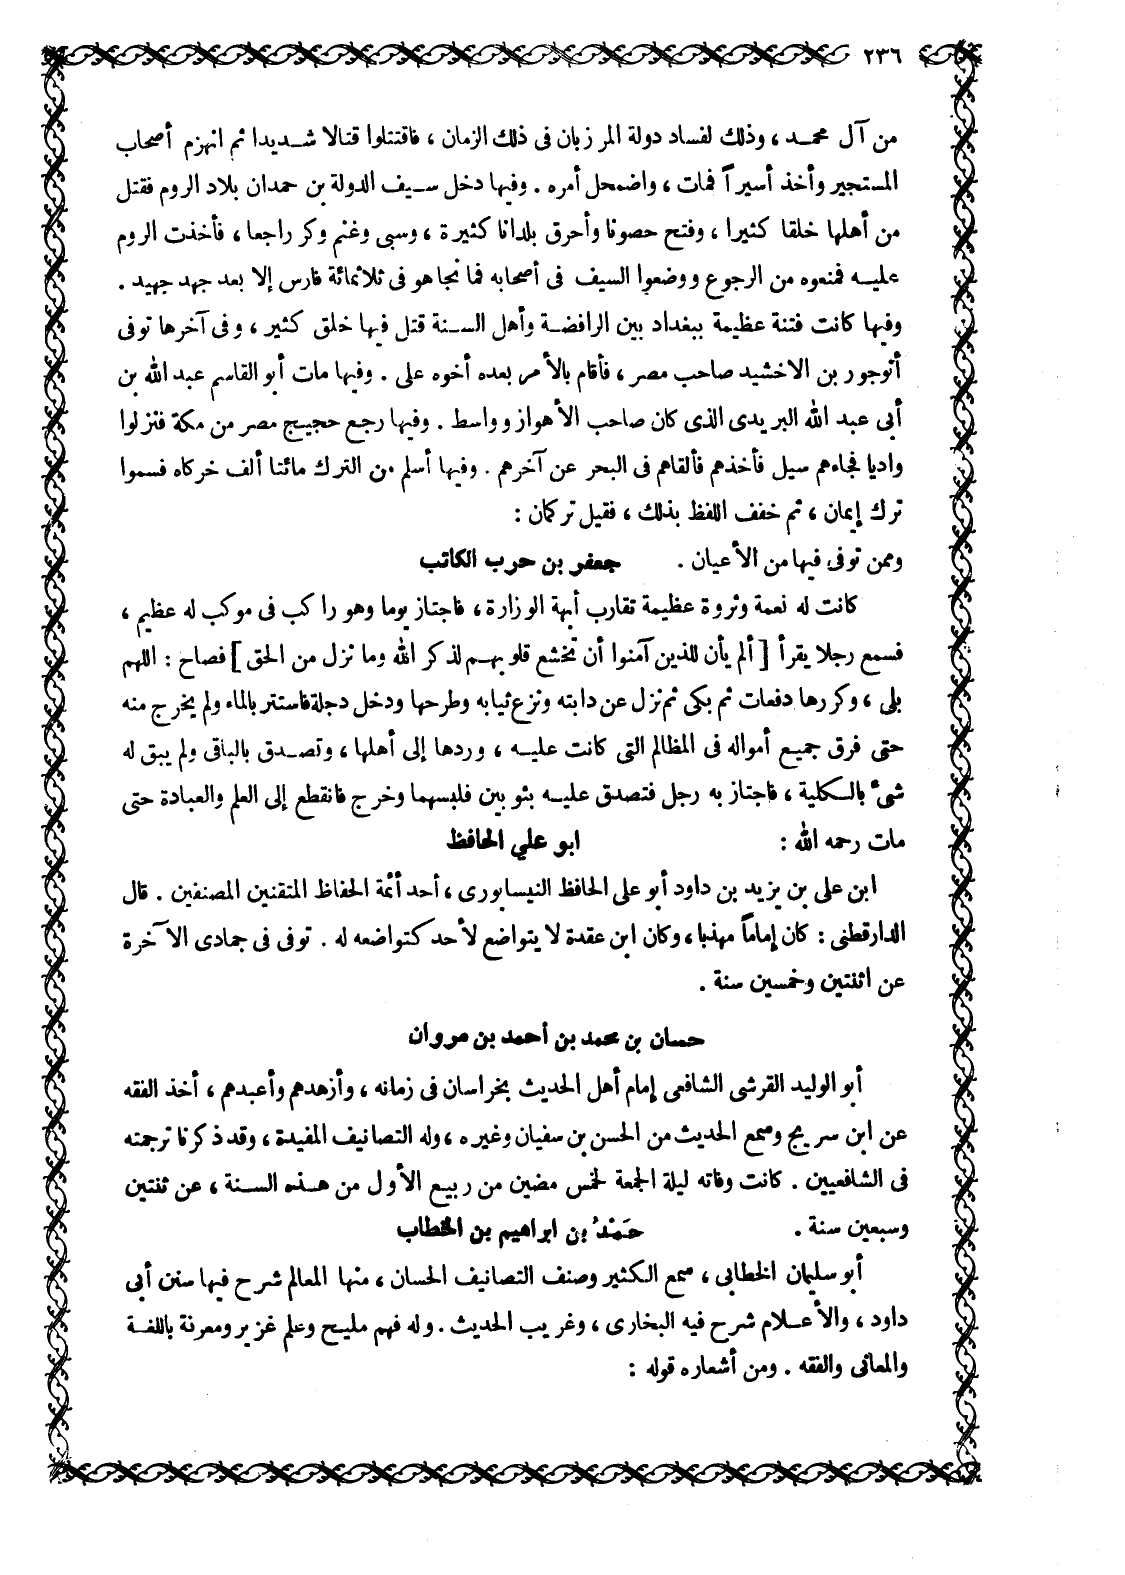 ٢٣٦
من آل محمد ، وذلك لفساد دولة المرزبان فى ذلك الزمان ، فاقتتلوا قتالا شديدا ثم انهزم أصحاب
المستجير وأخذ أسيراً فمات ، واضمحل أمره . وفيها دخل سيف الدولة بن حمدان بلاد الروم فقتل
من أهلها خلقا كثيرا ، وفتح حصونا وأحرق بلدانا كثيرة ، وسبى وغنم وكر راجعا ، فأخذت الروم
عليه فمنعوه من الرجوع ووضعوا السيف فى أصحابه فما نجا هو فى ثلاثمائة فارس إلا بعد جهد جهيد .
وفيها كانت فتنة عظيمة ببغداد بين الرافضة وأهل السنة قتل فيها خلق كثير ، وفى آخرها توفى
أنوجور بن الاخشيد صاحب مصر ، فأقام بالأمر بعده أخوه على . وفيها مات أبو القاسم عبد الله بن
أبى عبد الله البريدى الذى كان صاحب الأهواز وواسط . وفيها رجع حجيج مصر من مكة فنزلوا
واديا فجاءهم سيل فأخذهم فألقاهم فى البحر عن آخرهم . وفيها أسلم من الترك مائتا ألف خركاه فسموا
ترك إيمان ، ثم خفف اللفظ بذلك ، فقيل تركمان :
وممن توفى فيها من الأعيان . جعفر بن حرب الكاتب
كانت له نعمة وثروة عظيمة تقارب أبهة الوزارة ، فاجتاز يوما وهو راكب فى موكب له عظيم ،
فسمع رجلا يقرأ [ ألم يأن للذين آمنوا أن تخشع قلوبهم لذكر الله وما نزل من الحق ] فصاح : اللهم
بلى ، وكررها دفعات ثم بكى ثم نزل عن دابته ونزع ثيابه وطرحها ودخل دجلة فاستتر بالماء ولم يخرج منه
حتى فرق جميع أمواله فى المظالم التى كانت عليه ، وردها إلى أهلها ، وتصدق بالباقى ولم يبق له
شىء بالكلية ، فاجتاز به رجل فتصدق عليه بثوبين فلبسهما وخرج فانقطع إلى العلم والعبادة حتى
مات رحمه الله : ابو علي الحافظ
ابن على بن يزيد بن داود أبو على الحافظ النيسابورى ، أحد أئمة الحفاظ المتقنين المصنفين . قال
الدارقطنى : كان إماماً مهذبا ، وكان ابن عقدة لا يتواضع لأحد كتواضعه له . توفى فى جمادى الآخرة
عن اثنتين وخمسين سنة .
حسان بن محمد بن أحمد بن مروان
أبو الوليد القرشى الشافعى إمام أهل الحديث بخراسان فى زمانه ، وأزهدهم وأعبدهم ، أخذ الفقه
عن ابن سريج وسمع الحديث من الحسن بن سفيان وغيره ، وله التصانيف المفيدة ، وقد ذكرنا ترجمته
فى الشافعيين . كانت وفاته ليلة الجمعة لخمس مضين من ربيع الأول من هذه السنة ، عن ثنتين
وسبعين سنة . حَمْدُ بن ابراهيم بن الخطاب
أبو سليمان الخطابى ، سمع الكثير وصنف التصانيف الحسان ، منها المعالم شرح فيها سنن أبى
داود ، والأعلام شرح فيه البخارى ، وغريب الحديث . وله فهم مليح وعلم غزير ومعرفة باللغة
والمعانى والفقه . ومن أشعاره قوله :